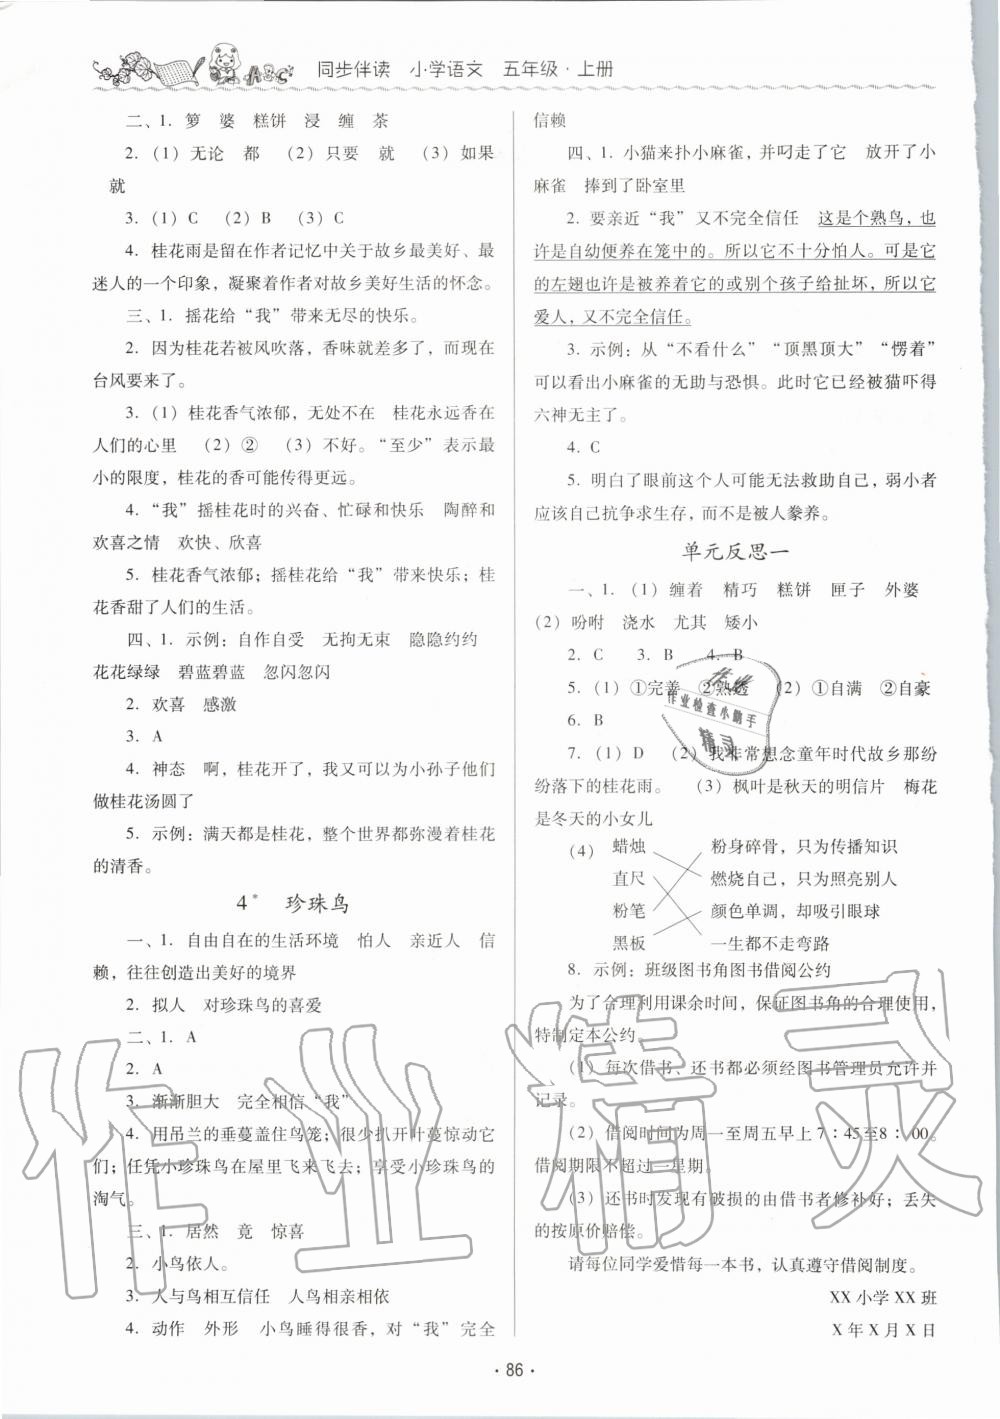 同步伴读　小学语文　五年级·上册
二、1. 箩　婆　糕饼　浸　缠　茶
2.（1）无论　都　（2）只要　就　（3）如果
就
3.（1）C　（2）B　（3）C
4. 桂花雨是留在作者记忆中关于故乡最美好、最
迷人的一个印象，凝聚着作者对故乡美好生活的怀念。
三、1. 摇花给“我”带来无尽的快乐。
2. 因为桂花若被风吹落，香味就差多了，而现在
台风要来了。
3.（1）桂花香气浓郁，无处不在　桂花永远香在
人们的心里　（2）②　（3）不好。“至少”表示最
小的限度，桂花的香可能传得更远。
4.“我”摇桂花时的兴奋、忙碌和快乐　陶醉和
欢喜之情　欢快、欣喜
5. 桂花香气浓郁；摇桂花给“我”带来快乐；桂
花香甜了人们的生活。
四、1. 示例：自作自受　无拘无束　隐隐约约
花花绿绿　碧蓝碧蓝　忽闪忽闪
2. 欢喜　感激
3. A
4. 神态　啊，桂花开了，我又可以为小孙子他们
做桂花汤圆了
5. 示例：满天都是桂花，整个世界都弥漫着桂花
的清香。
4*　珍珠鸟
一、1. 自由自在的生活环境　怕人　亲近人　信
赖，往往创造出美好的境界
2. 拟人　对珍珠鸟的喜爱
二、1. A
2. A
3. 渐渐胆大　完全相信“我”
4. 用吊兰的垂蔓盖住鸟笼；很少扒开叶蔓惊动它
们；任凭小珍珠鸟在屋里飞来飞去；享受小珍珠鸟的
淘气。
三、1. 居然　竟　惊喜
2. 小鸟依人。
3. 人与鸟相互信任　人鸟相亲相依
4. 动作　外形　小鸟睡得很香，对“我”完全
信赖
四、1. 小猫来扑小麻雀，并叼走了它　放开了小
麻雀　捧到了卧室里
2. 要亲近“我”又不完全信任　这是个熟鸟，也
许是自幼便养在笼中的。所以它不十分怕人。可是它
的左翅也许是被养着它的或别个孩子给扯坏，所以它
爱人，又不完全信任。
3. 示例：从“不看什么”“顶黑顶大”“愣着”
可以看出小麻雀的无助与恐惧。此时它已经被猫吓得
六神无主了。
4. C
5. 明白了眼前这个人可能无法救助自己，弱小者
应该自己抗争求生存，而不是被人豢养。
单元反思一
一、1.（1）缠着　精巧　糕饼　匣子　外婆
（2）吩咐　浇水　尤其　矮小
2. C　3. B　4. B
5.（1）①完善　②熟透　（2）①自满　②自豪
6. B
7.（1）D　（2）我非常想念童年时代故乡那纷
纷落下的桂花雨。　（3）枫叶是秋天的明信片　梅花
是冬天的小女儿
（4）　蜡烛　粉身碎骨，只为传播知识
直尺　燃烧自己，只为照亮别人
粉笔　颜色单调，却吸引眼球
黑板　一生都不走弯路
8. 示例：班级图书角图书借阅公约
为了合理利用课余时间，保证图书角的合理使用，
特制定本公约。
（1）每次借书、还书都必须经图书管理员允许并
记录。
（2）借阅时间为周一至周五早上7：45至8：00。
借阅期限不超过一星期。
（3）还书时发现有破损的由借书者修补好；丢失
的按原价赔偿。
请每位同学爱惜每一本书，认真遵守借阅制度。
XX小学XX班
X年X月X日
·86·
作业
作业检查小助手
精灵
作业精灵